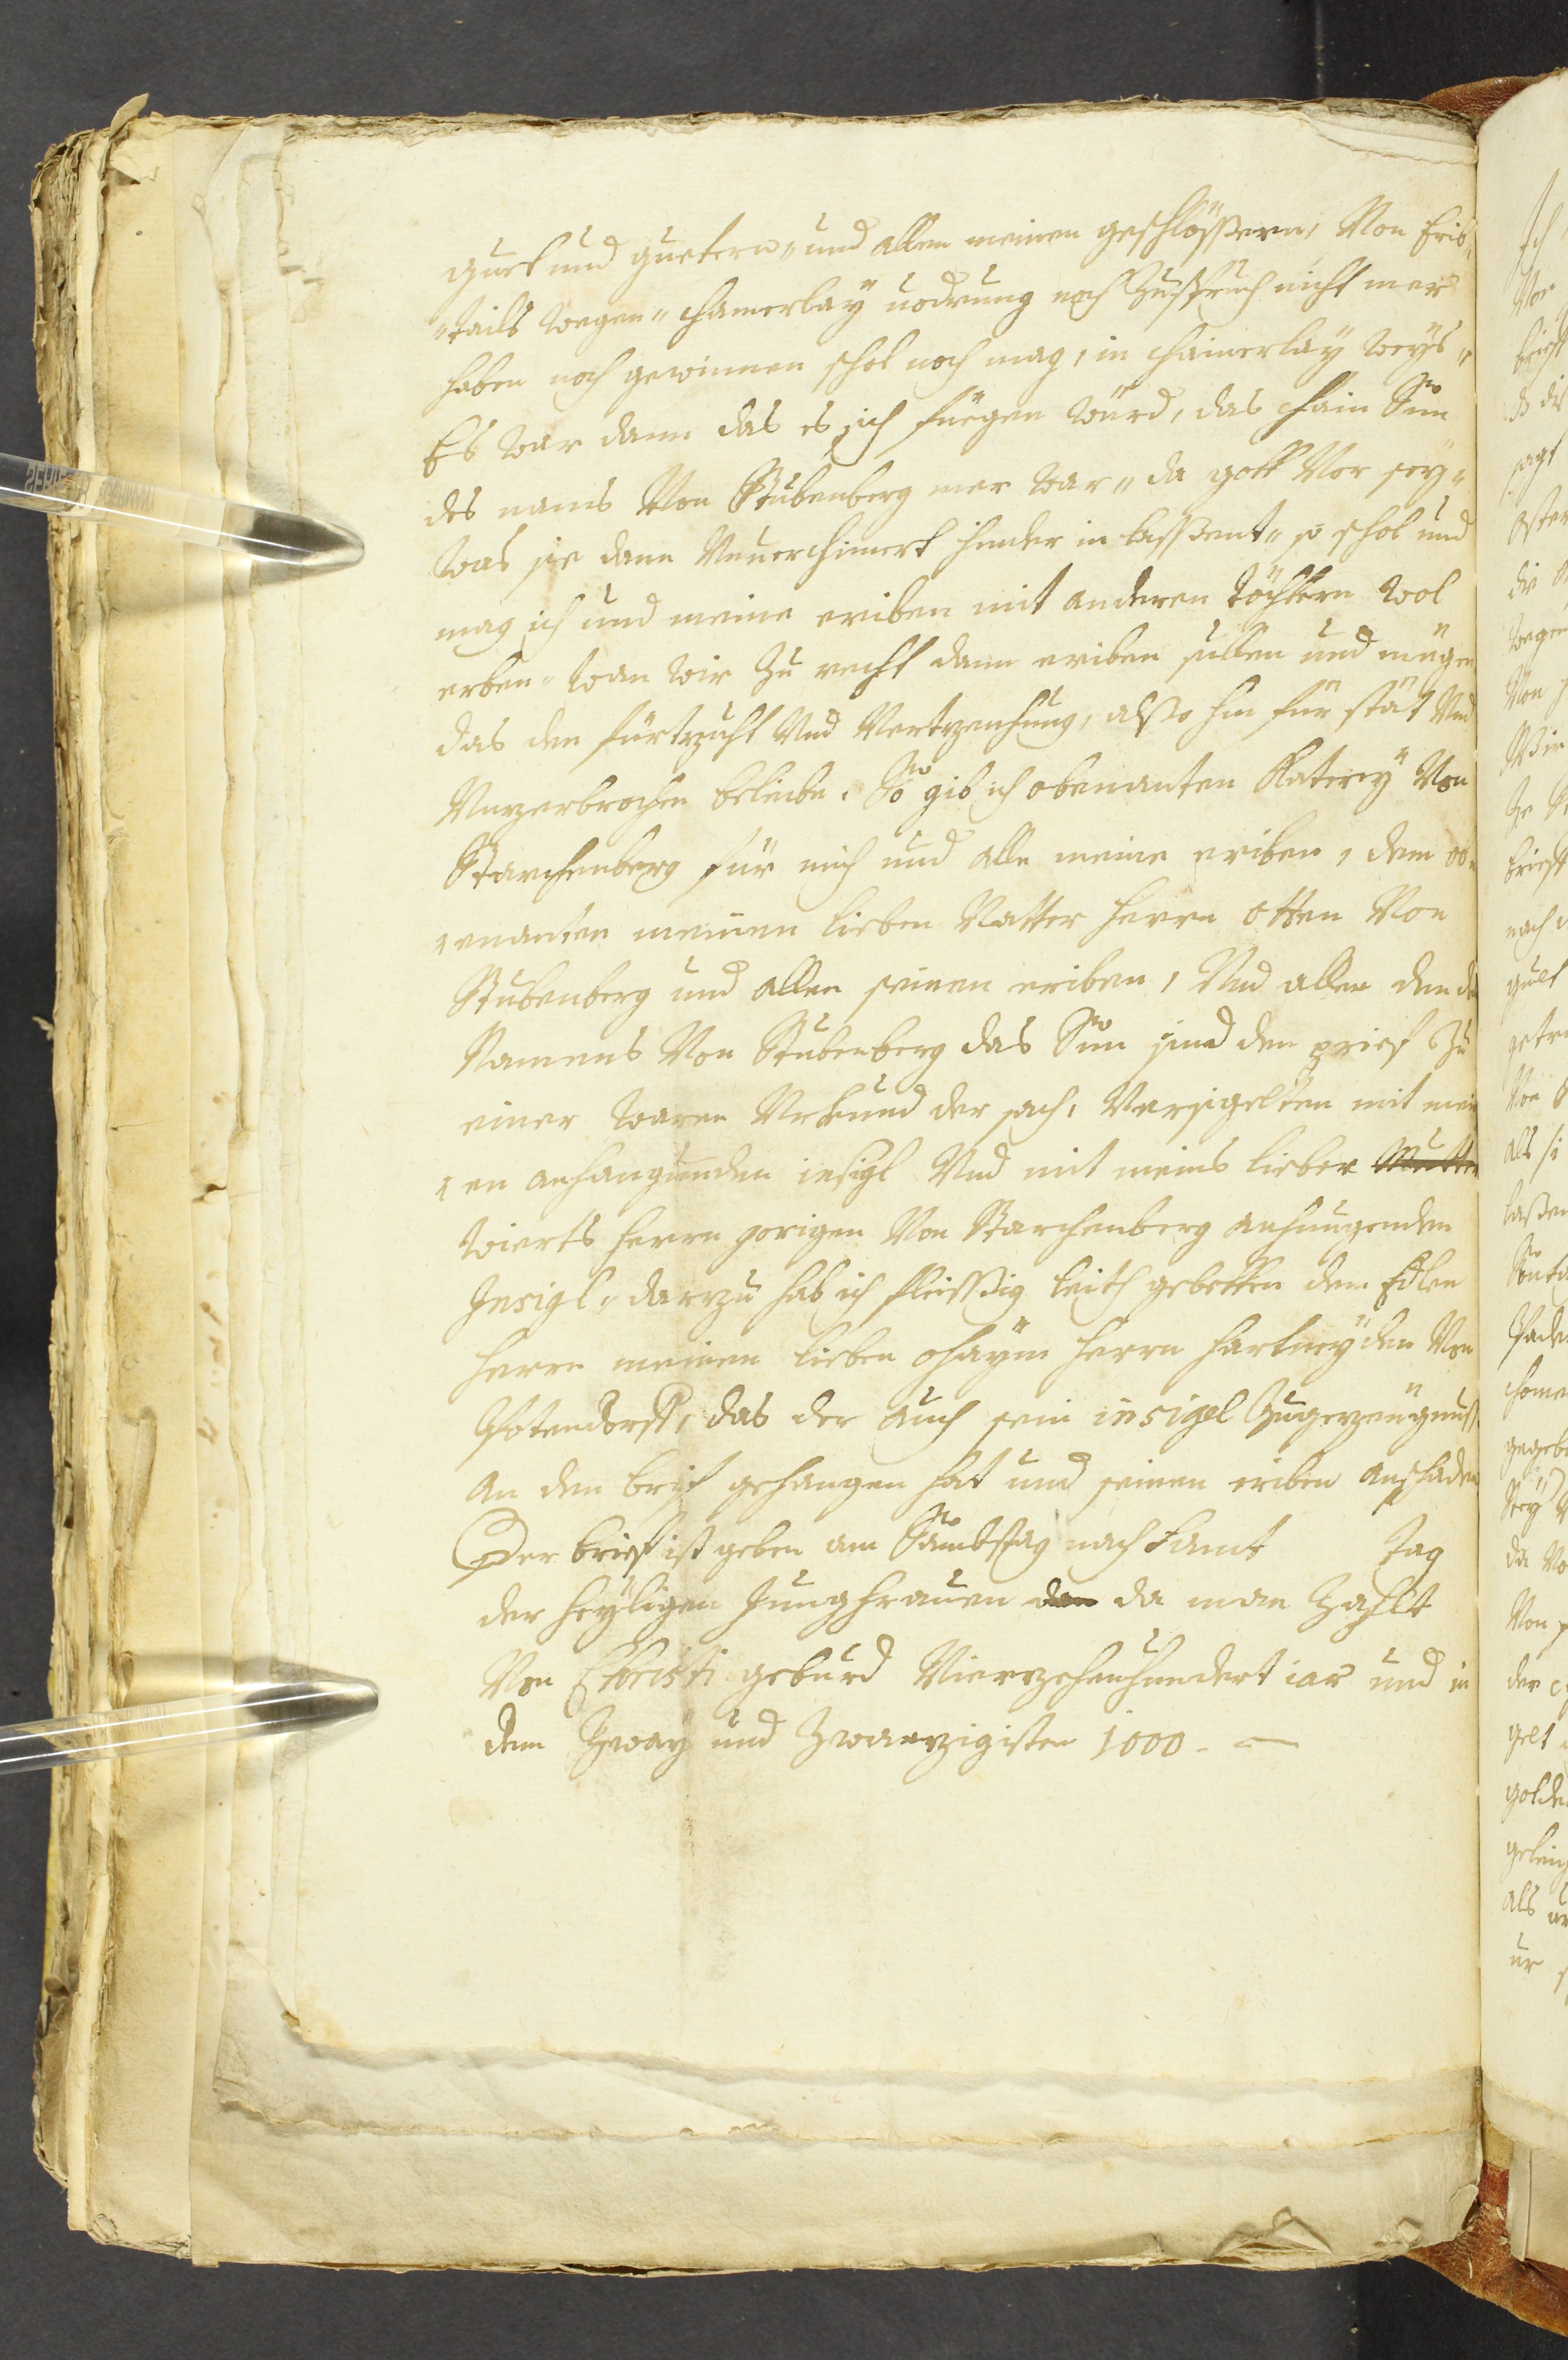 guet und guetern, und allen meinen geschlössern, Von Erib„
„tails wegen„ chainerlay uodrung noch Zuspruch nicht mer
haben noch gewinnen schol noch mag, in chainerlay weys„
Es war dann das es sich fuegen würd, das chain Sun
des nams Von Stubenberg mer war„ da gott Vor sey„
was sie dann Vnuerchimert hinder in lassent„ so schol und
mag ich und meine eriben mit anderen töchtern wol
erben„ wan wir zu recht dann eriben sullen und mügen
das den fürtzicht Vnd Vertzeuchung, also hin für stät Vnd
Vnzerbrochen beleibe. So gib ich obenanten Katerey Von
Starchenberg für mich und alle meine eriben, dem ob„
„enanten meinen lieben Vatter herrn Otten Von
Stubenberg und allen seinen eriben, Vnd allen den des
Namens Von Stubenberg das Sun sind den prief Zu
einer waren Vrkund der sach, Versigelten mit mein
„en anhangunden insigl Vnd mit meins lieben Mutter
wierts herrn Jorigen Von Starchenberg anhangenden
Insigl„ darzu hab ich fleissig leich gebetten den Edlen
herrn meinen lieben ohaym herrn hartneyden Von
Potendorff, das der auch sein insigel Zugezeugnuss
an den brif gehangen hat und seinen eriben anschaden
Der brieff ist geben am Sambstag nach Sant Tag
der heyligen Jungfrauen den da man Zahlt
Von Christi geburd Vierzehenhundert iar und in
dem Zway und Zwanzigisten 1000 -